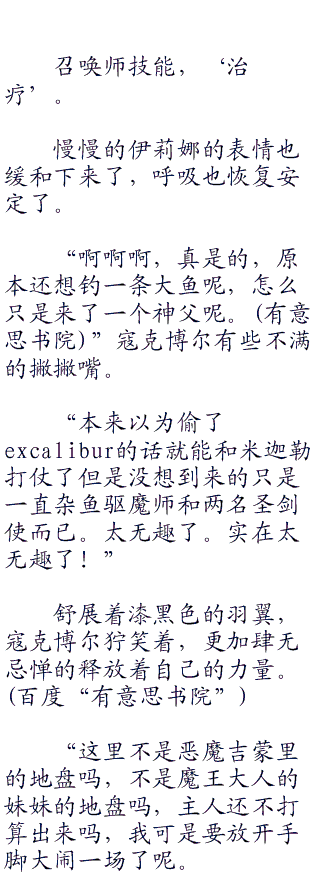 召唤师技能，‘治
疗’。
慢慢的伊莉娜的表情也
缓和下来了，呼吸也恢复安
定了。
“啊啊啊，真是的，原
本还想钓一条大鱼呢，怎么
只是来了一个神父呢。(有意
思书院)”寇克博尔有些不满
的撇撇嘴。
“本来以为偷了
excalibur的话就能和米迦勒
打仗了但是没想到来的只是
一直杂鱼驱魔师和两名圣剑
使而已。太无趣了。实在太
无趣了！”
舒展着漆黑色的羽翼，
寇克博尔狞笑着，更加肆无
忌惮的释放着自己的力量。
(百度“有意思书院”)
“这里不是恶魔吉蒙里
的地盘吗，不是魔王大人的
妹妹的地盘吗，主人还不打
算出来吗，我可是要放开手
脚大闹一场了呢。